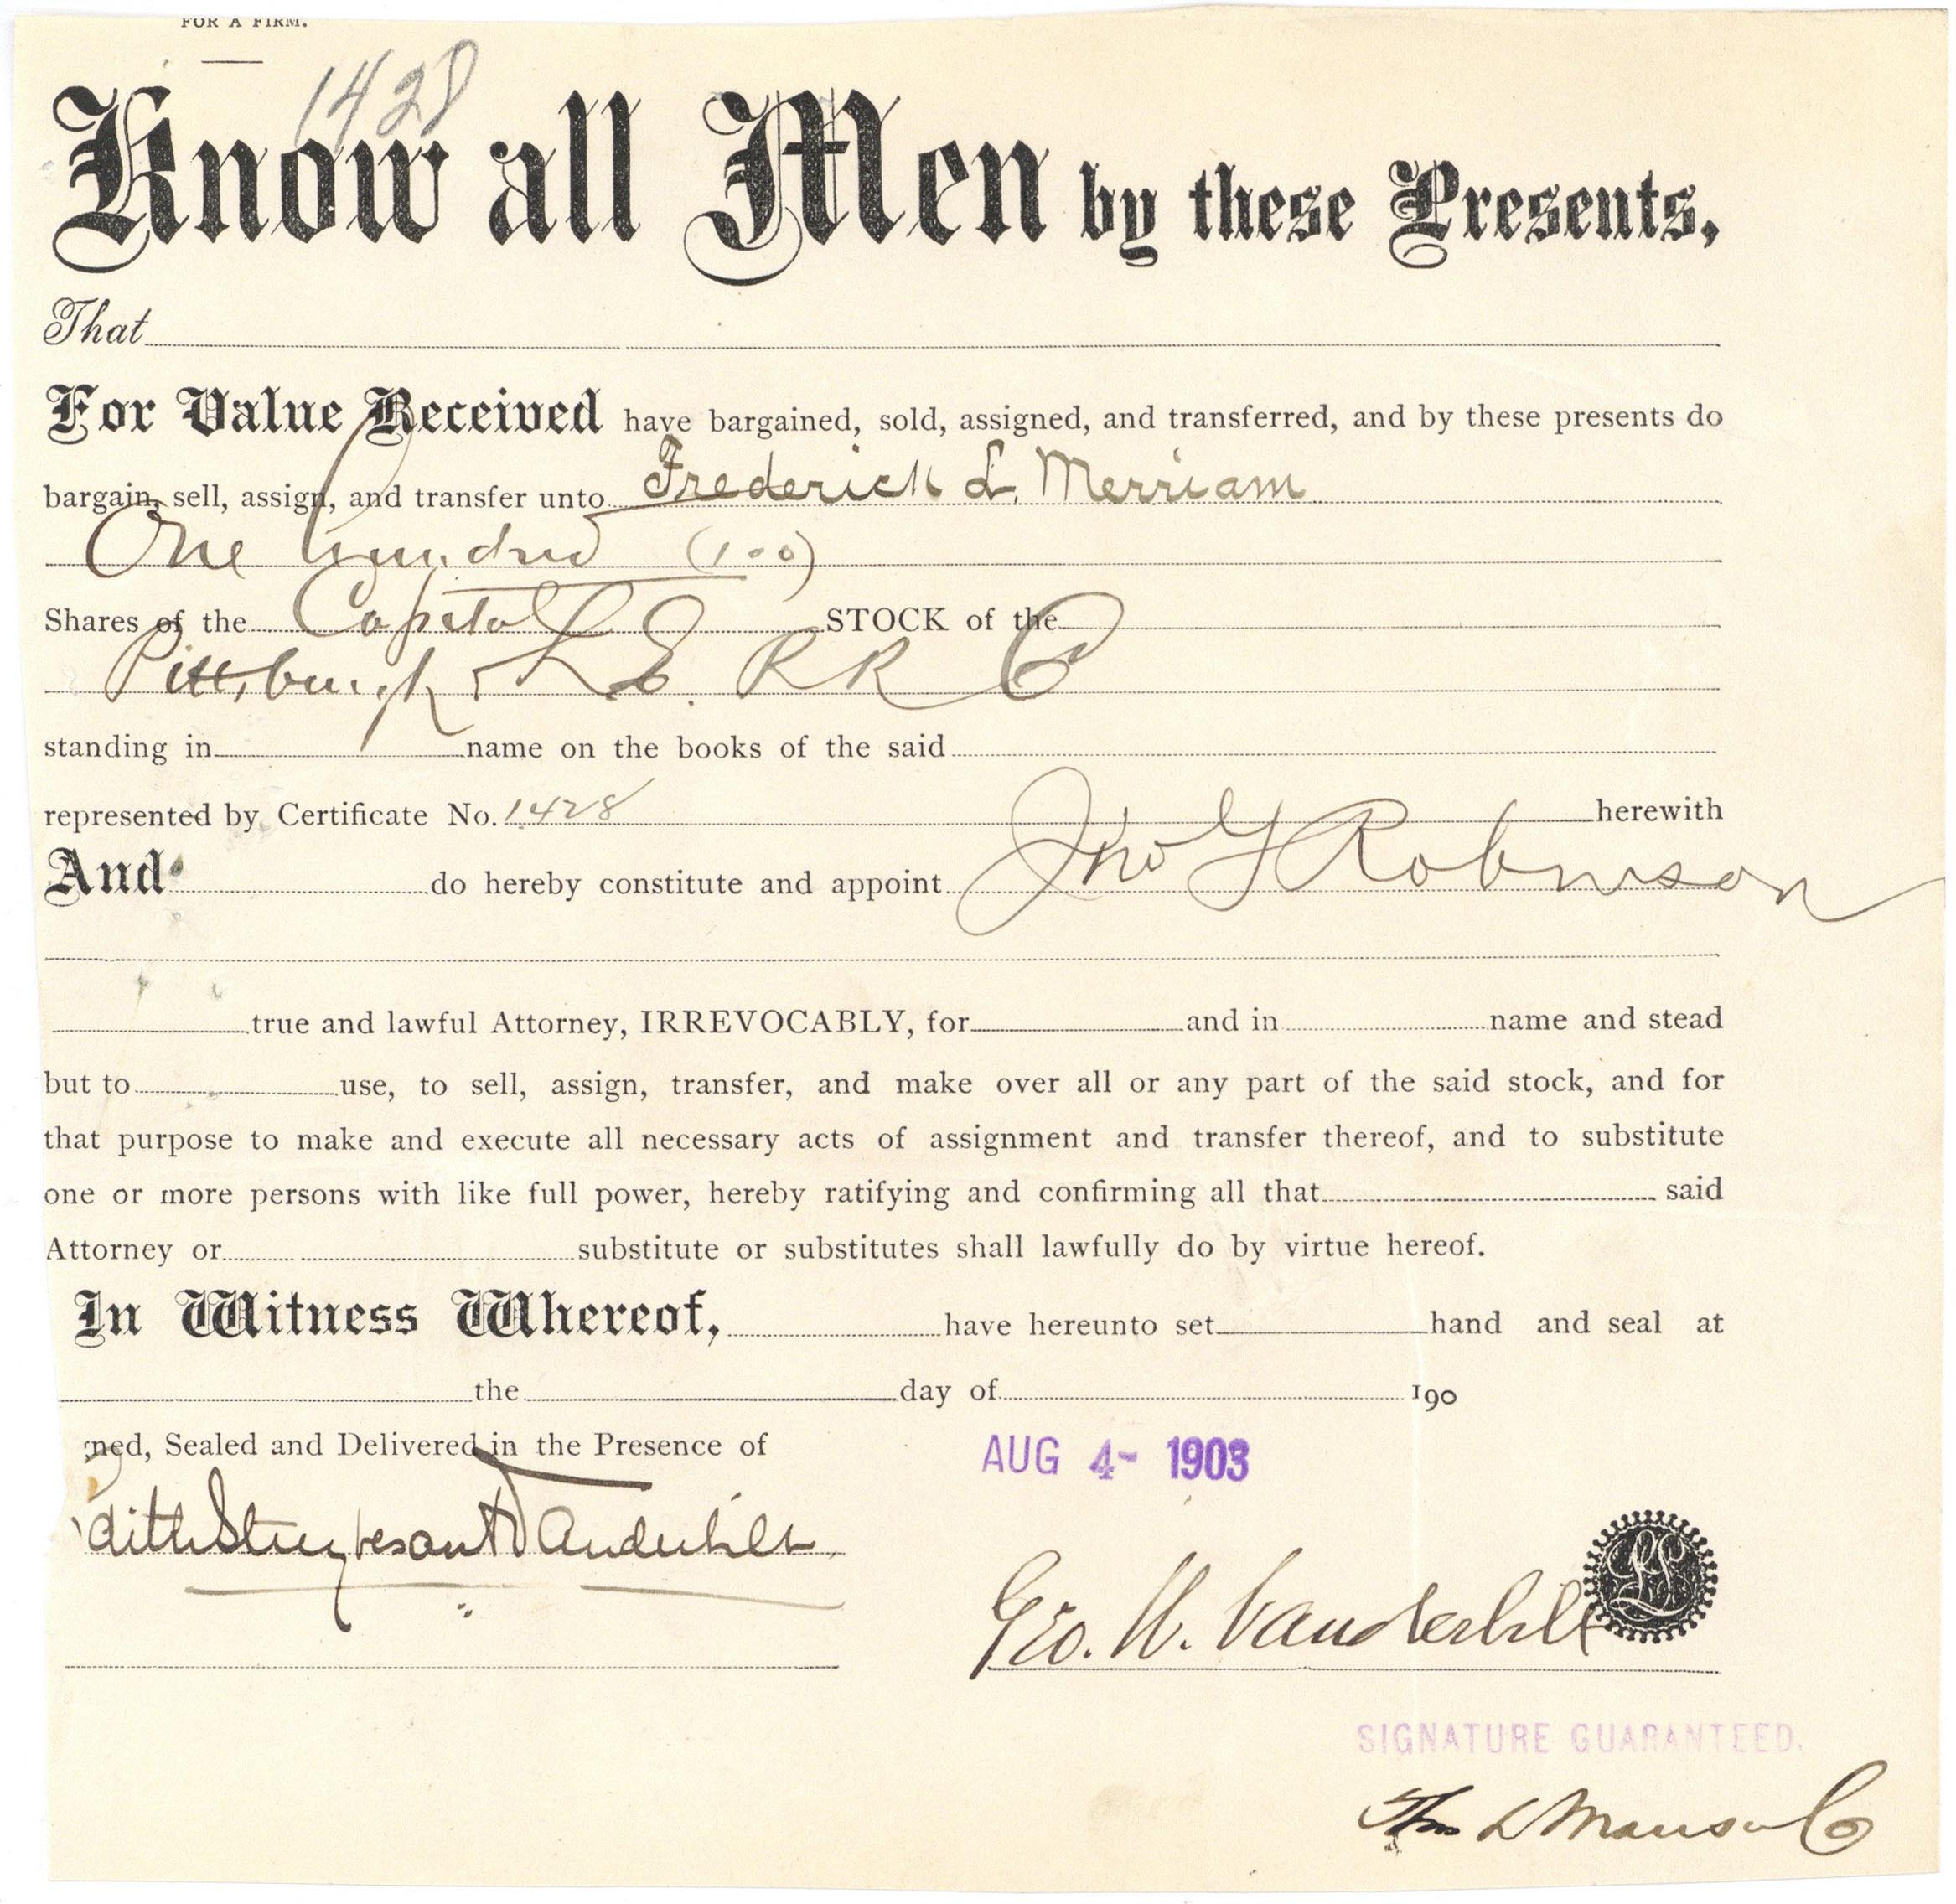 FOR A FIRM.
1428
Know all Men by these Presents,
That
For Value Received have bargained, sold, assigned, and transferred, and by these presents do
bargain, sell, assign, and transfer unto Frederick L. Merriam
One hundred (100)
Shares of the Capital STOCK of the
Pittsburgh & L E. RR Co
standing in name on the books of the said
represented by Certificate No. 1428 herewith
And do hereby constitute and appoint Jno G Robinson
true and lawful Attorney, IRREVOCABLY, for and in name and stead
but to use, to sell, assign, transfer, and make over all or any part of the said stock, and for
that purpose to make and execute all necessary acts of assignment and transfer thereof, and to substitute
one or more persons with like full power, hereby ratifying and confirming all that said
Attorney or substitute or substitutes shall lawfully do by virtue hereof.
In Witness Whereof, have hereunto set hand and seal at
the day of 190
ned, Sealed and Delivered in the Presence of
AUG 4- 1903
dith Stuyvesant Vanderbilt
Geo. W. Vanderbilt LS
SIGNATURE GUARANTEED.
Co